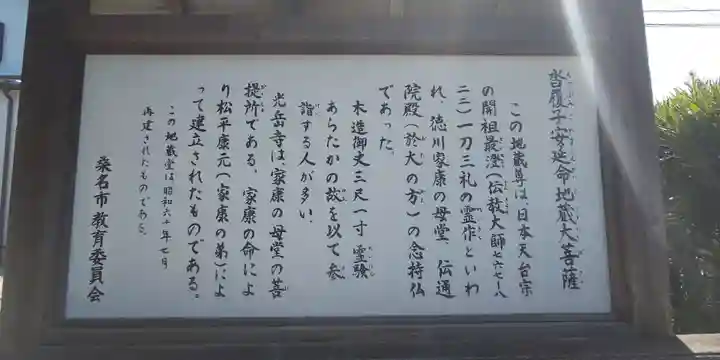 沓履子安延命地蔵大菩薩
この地蔵尊は、日本天台宗
の開祖最澄（伝教大師七六七〜八
二二）一刀三礼の霊作といわ
れ、徳川家康の母堂、伝通
院殿（於大の方）の念持仏
であった。
木造御丈三尺一寸 霊験
あらたかの故を以て参
詣する人が多い。
光岳寺は、家康の母堂の菩
提所である。家康の命によ
り松平康元（家康の弟）によ
って建立されたものである。
この地蔵堂は昭和六十年七月
再建されたものである。
桑名市教育委員会